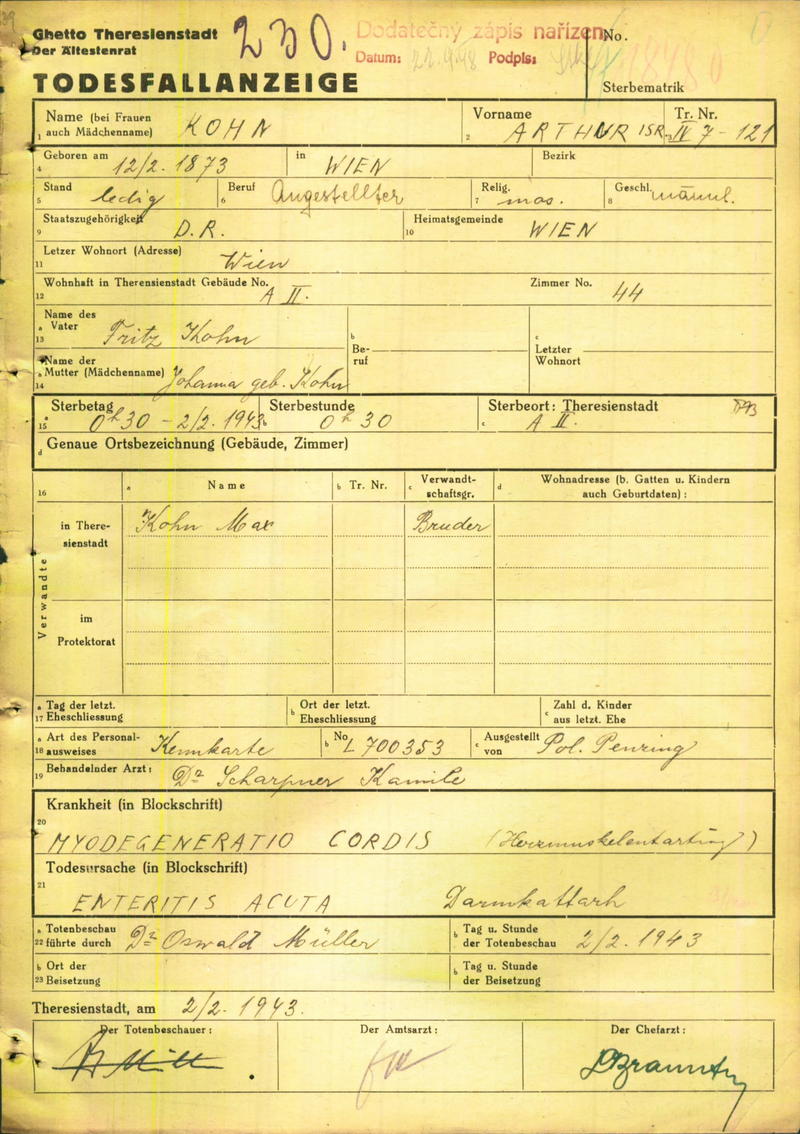 Ghetto Theresienstadt
Der Ältestenrat
230.
Dodatečný zápis nařízen
Datum: Podpis:
No.
TODESFALLANZEIGE
Sterbematrik
Name (bei Frauen auch Mädchenname) KOHN Vorname ARTHUR ISR. Tr. Nr. IV 7 - 121
1 2
Geboren am 12/2. 1873 in WIEN Bezirk
4
Stand ledig Beruf Angestellter Relig. mos. Geschl. männl.
5 6 7 8
Staatszugehörigkeit D.R. Heimatsgemeinde WIEN
9 10
Letzer Wohnort (Adresse) Wien
11
Wohnhaft in Theresienstadt Gebäude No. A II. Zimmer No. 44
12
Name des
a Vater Fritz Kohn b c
13 Be- Letzter
Name der ruf Wohnort
a Mutter (Mädchenname) Johanna geb. Kohn
14
Sterbetag Sterbestunde Sterbeort: Theresienstadt
a 15 0h 30 - 2/2. 1943 b 0h 30 c A II.
d Genaue Ortsbezeichnung (Gebäude, Zimmer)
16 a Name b Tr. Nr. c Verwandt-schaftsgr. d Wohnadresse (b. Gatten u. Kindern auch Geburtdaten) :
Verwandte
in There-sienstadt Kohn Max Bruder
im Protektorat
a Tag der letzt. b Ort der letzt. c Zahl d. Kinder
17 Eheschliessung Eheschliessung aus letzt. Ehe
a Art des Personal- b No c Ausgestellt
18 ausweises Kennkarte L 700353 von Pol.
19 Behandelnder Arzt: Dr Kamile
Krankheit (in Blockschrift)
20
MYODEGENERATIO CORDIS (Herzmuskelentartung)
Todesursache (in Blockschrift)
21
ENTERITIS ACUTA Darmkattarh
a Totenbeschau b Tag u. Stunde
22 führte durch Dr Oswald Müller der Totenbeschau 2/2. 1943
b Ort der b Tag u. Stunde
23 Beisetzung der Beisetzung
Theresienstadt, am 2/2. 1943.
Der Totenbeschauer: Der Amtsarzt: Der Chefarzt: